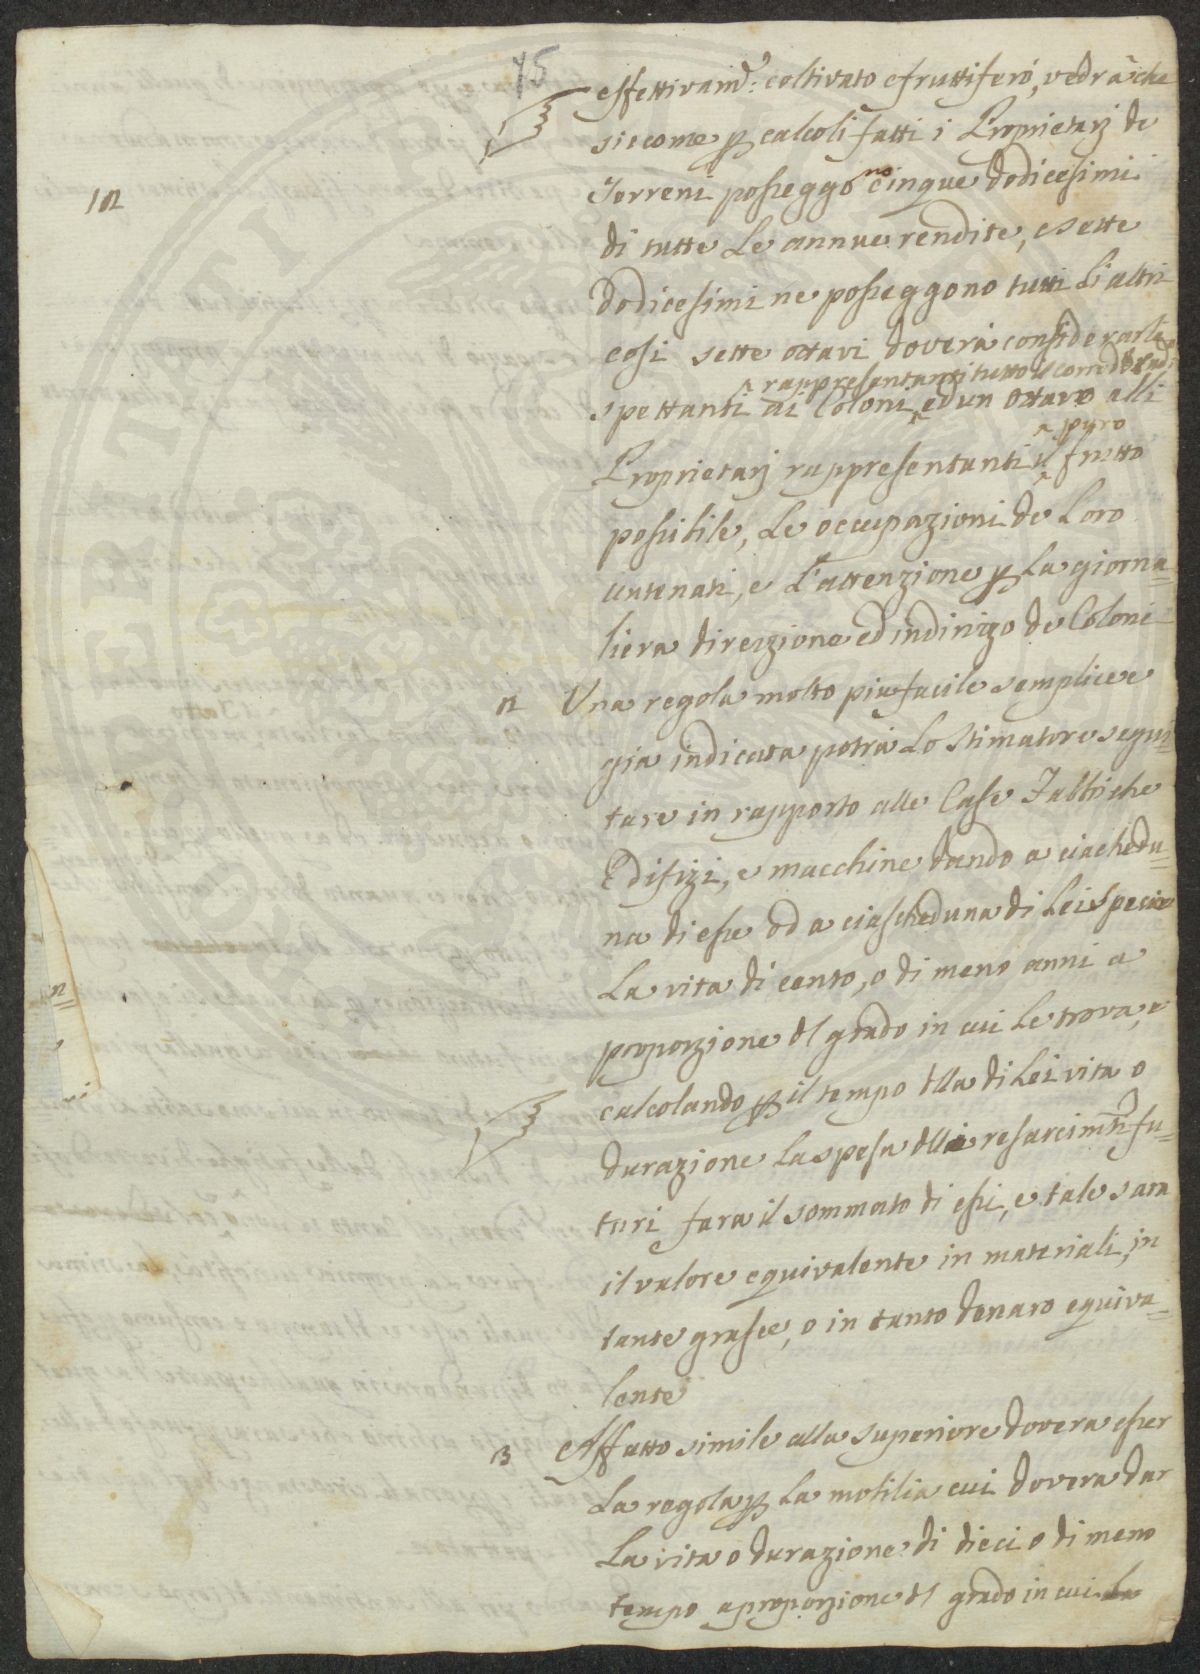 75
effettivam.e: coltivato e fruttifero, vedrà che
siccome p calcoli fatti i Proprietarj de
102
Terreni posseggono cinque dodicesimi
di tutte le annue rendite, e sette
dodicesimi ne posseggono tutti li altri
cosi sette ottavi doverà considerarli
rappresentanti tutto il
spettanti ai Coloni, ed un ottavo alli
puro
Proprietarj rappresentanti il frutto
possibile, le occupazioni de loro
antenati, e l'attenzione p la giorna=
liera direzione ed indirizzo de Coloni
12 Una regola molto piu facile semplice e
gia indicata potrà lo stimatore segui=
tare in rapporto alle Case Fabbriche
Edifizi, e macchine dando a ciaschedu=
na di esse od a ciascheduna di lei specie
la vita di cento, o di meno anni a
proporzione dl grado in cui le trova, e
calcolando p il tempo dlla di lei vita o
durazione la spesa dlli resarcimti fu=
turi fara il sommato di essi, e tale sara
il valore equivalente in materiali, in
tante grasce, o in tanto denaro equiva=
lente
13 Affatto simile alla superiore dovera esser
la regola p la mobilia cui dovera dar
la vita o durazione di dieci o di meno
tempo a proporzione dl grado in cui la